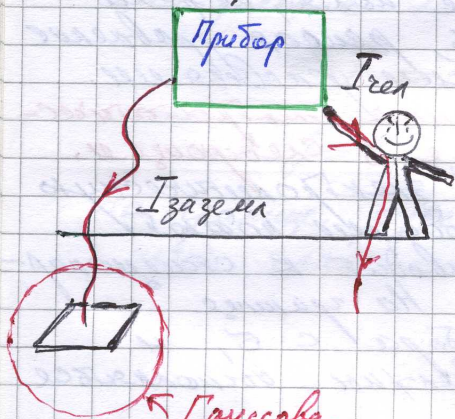 Прибор
Iчел
Iзаземл
Гауссова